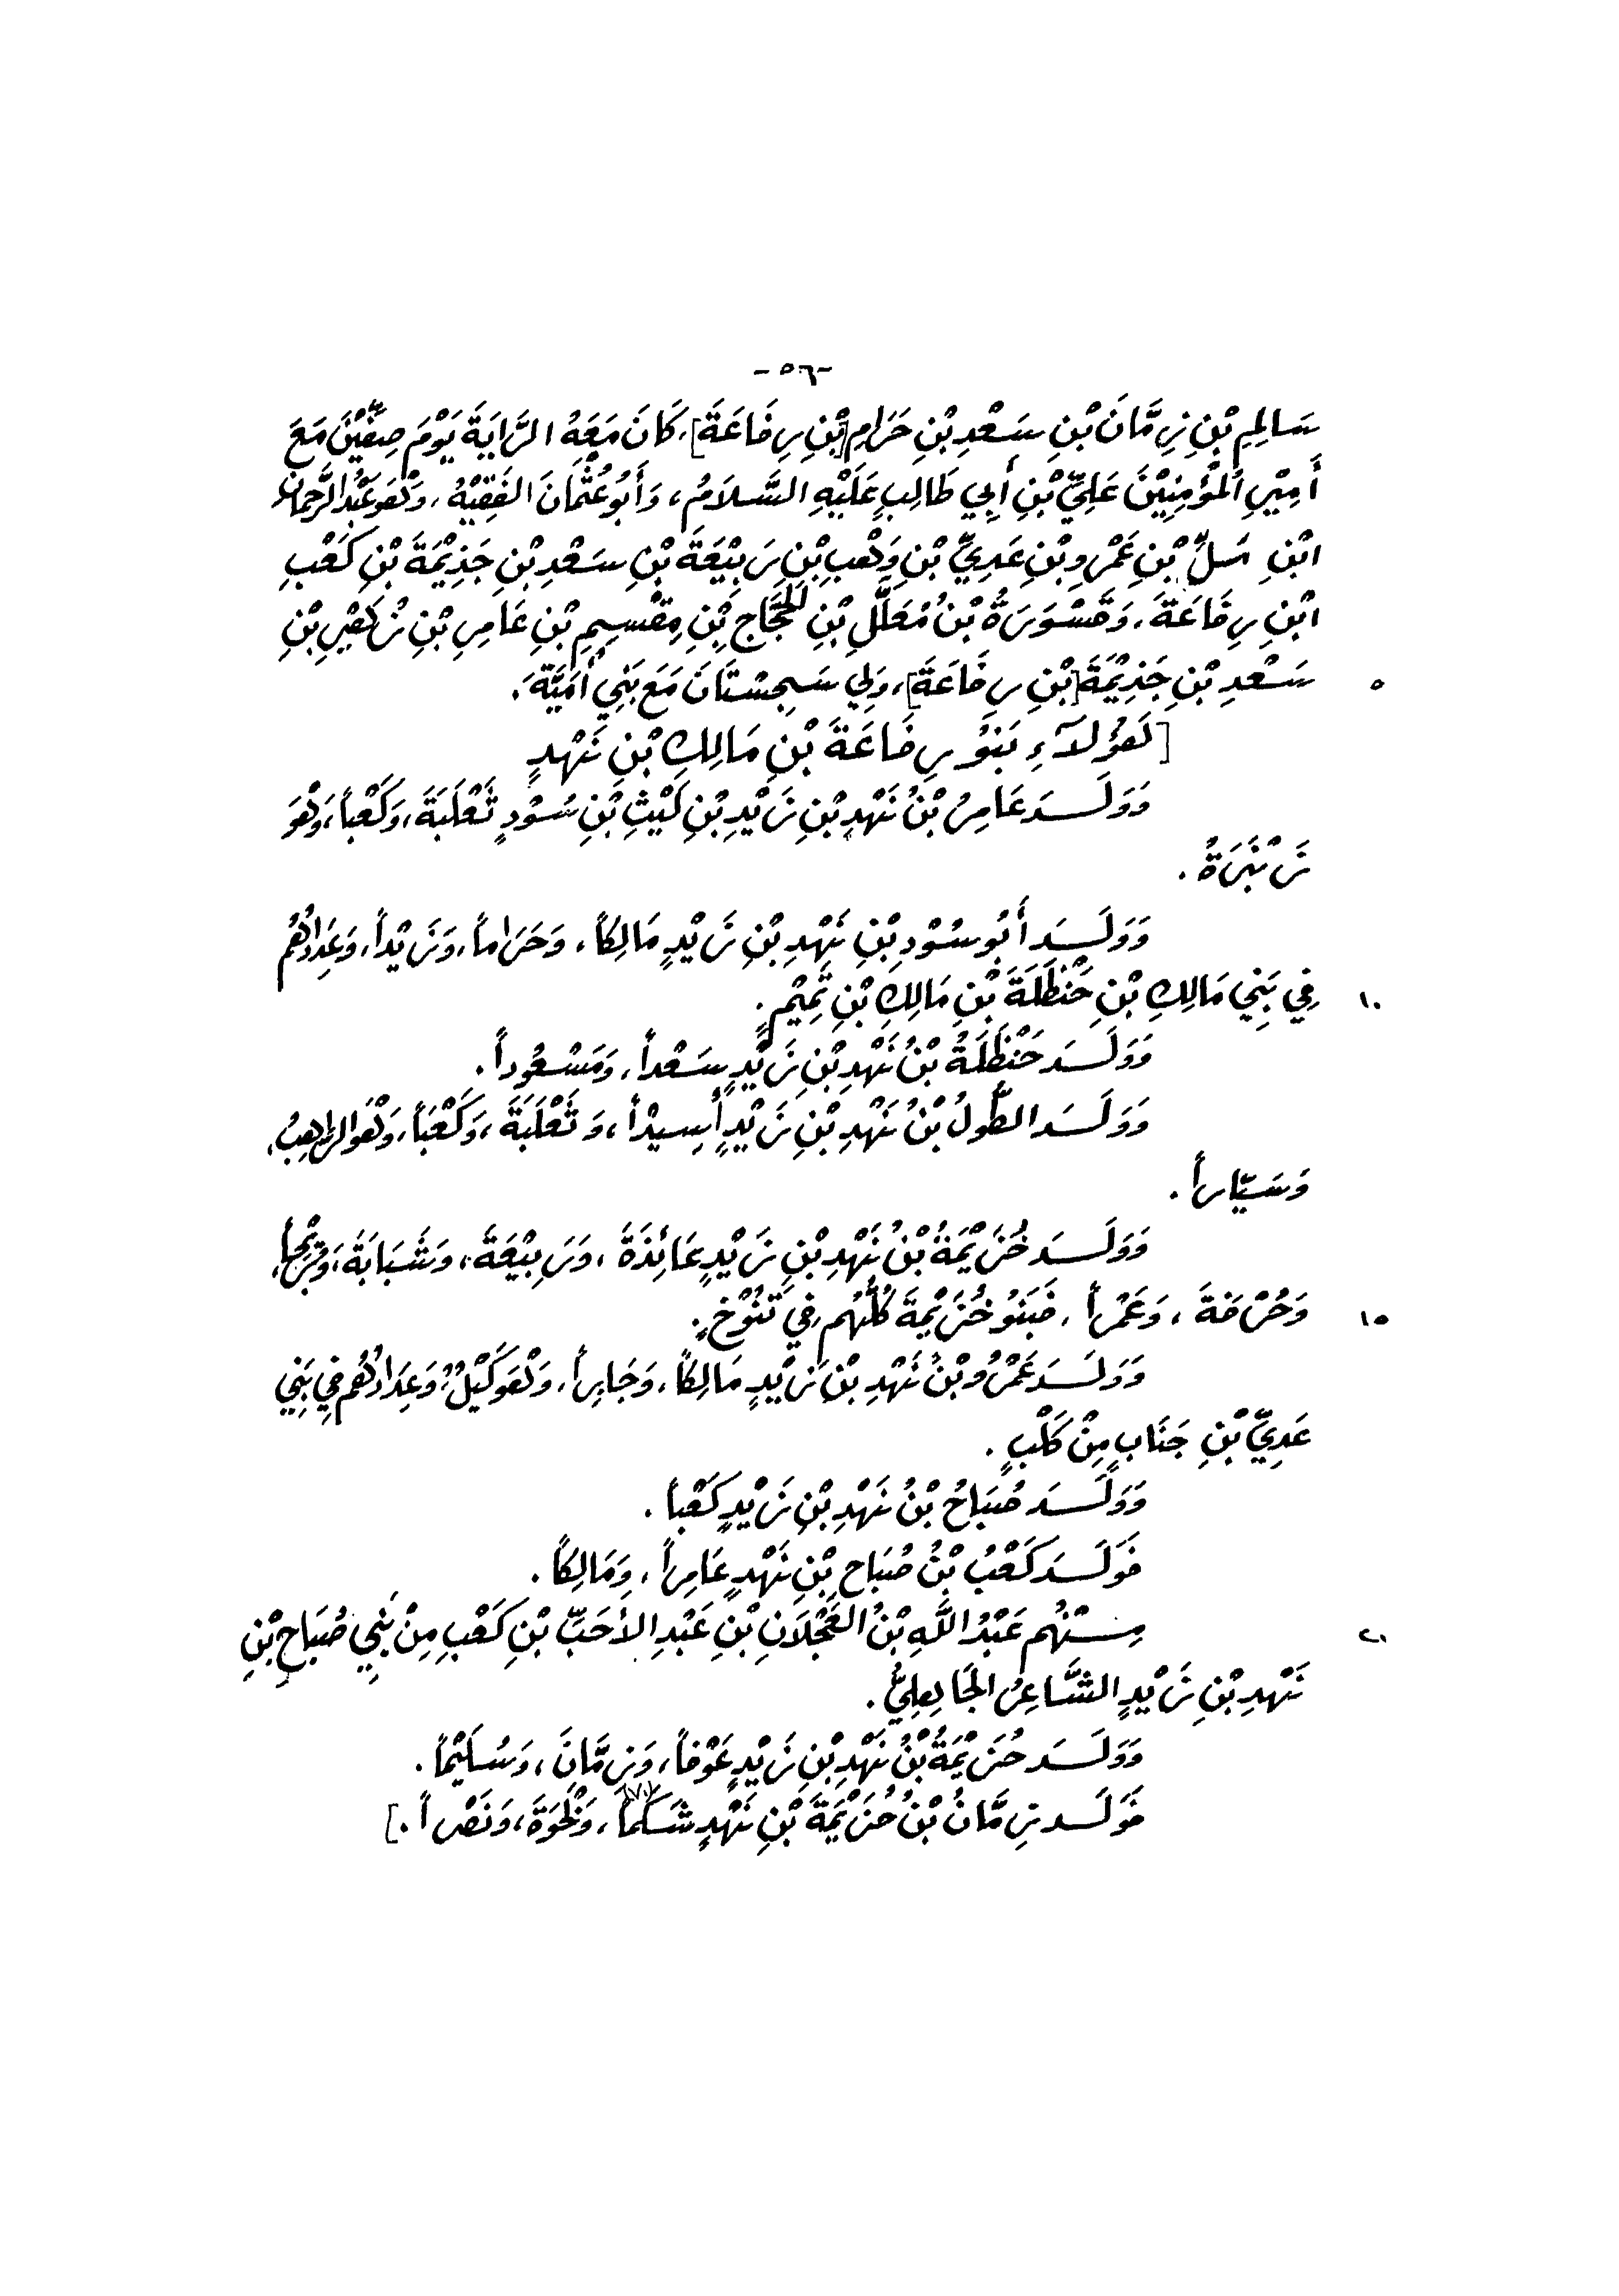 -٥٦-
سَالِمِ بْنِ زِمَّانَ بْنِ سَعْدِ بْنِ حَرَامِ [بْنِ رِفَاعَةَ]، كَانَ مَعَهُ الرَّايَةُ يَوْمَ صِفِّيْنَ مَعَ
أَمِيْرِ المُؤْمِنِيْنَ عَلِيِّ بْنِ أَبِي طَالِبٍ عَلَيْهِ السَّلَامُ، وَأَبُو عُثْمَانَ الفَقِيْهُ، وَهُوَ عَبْدُ الرَّحْمَانِ
ابْنِ مَلِّ بْنِ عَمْرِو بْنِ عَدِيِّ بْنِ وَهْبِ بْنِ رَبِيْعَةَ بْنِ سَعْدِ بْنِ جَذِيْمَةَ بْنِ كَعْبِ
ابْنِ رِفَاعَةَ، وَقَسْوَرَةُ بْنُ مُعَلَّلِ بْنِ الحَجَّاجِ بْنِ مِقْسِيمِ بْنِ عَامِرِ بْنِ زُهَيْرِ بْنِ
٥ سَعْدِ بْنِ جَذِيْمَةَ [بْنِ رِفَاعَةَ]، وَلِيَ سَجِسْتَانَ مَعَ بَنِي أُمَيَّةَ.
[هَؤُلَآءِ بَنُو رِفَاعَةَ بْنِ مَالِكِ بْنِ نَهْدٍ
وَوَلَـدَ عَامِرُ بْنُ نَهْدِ بْنِ زَيْدِ بْنِ لَيْثِ بْنِ سُوْدٍ ثَعْلَبَةَ، وَكَعْباً، وَهُوَ
زَنْبَرَةُ.
وَوَلَـدَ أَبُو سُوْدِ بْنِ نَهْدِ بْنِ زَيْدٍ مَالِكاً، وَحَرَاماً، وَزَيْداً، وَعِدَادُهُم
١٠ فِي بَنِي مَالِكِ بْنِ حَنْظَلَةَ بْنِ مَالِكِ بْنِ تَمِيْمٍ.
وَوَلَـدَ حَنْظَلَةُ بْنُ نَهْدِ بْنِ زَيْدٍ سَعْداً، وَمَسْعُوداً.
وَوَلَـدَ الطُّولُ بْنُ نَهْدِ بْنِ زَيْدٍ أَسِيْداً، وَثَعْلَبَةَ، وَكَعْباً، وَهُوَ الرَّاهِبُ،
وَسَيَّاراً.
وَوَلَـدَ خُزَيْمَةُ بْنُ نَهْدِ بْنِ زَيْدٍ عَائِذَةَ، وَرَبِيْعَةَ، وَشَبَابَةَ،
١٥ وَحُرْفَةَ، وَعَمْراً، فَبَنُو خُزَيْمَةَ كُلُّهُم فِي تَنُوْخٍ.
وَوَلَـدَ عَمْرُو بْنُ نَهْدِ بْنِ زَيْدٍ مَالِكاً، وَجَابِراً، وَهُوَ كَيْلٌ، وَعِدَادُهُم فِي بَنِي
عَدِيِّ بْنِ جَنَابٍ مِنْ كَلْبٍ.
وَوَلَـدَ صُبَاحُ بْنُ نَهْدِ بْنِ زَيْدٍ كَعْباً.
فَوَلَـدَ كَعْبُ بْنُ صُبَاحِ بْنِ نَهْدٍ عَامِراً، وَمَالِكاً.
٢١ مِـنْهُم عَبْدُ اللَّهِ بْنُ العَجْلَانِ بْنِ عَبْدِ الأَحَبِّ بْنِ كَعْبٍ مِنْ بَنِي صُبَاحِ بْنِ
نَهْدِ بْنِ زَيْدٍ الشَّاعِرُ الجَاهِلِيُّ.
وَوَلَـدَ حُزَيْمَةُ بْنُ نَهْدِ بْنِ زَيْدٍ عَوْفاً، وَزِمَّانَ، وَسُلَيْماً.
فَوَلَـدَ زِمَّانُ بْنُ حُزَيْمَةَ بْنِ نَهْدٍ شَكَماً، وَنَصْراً.]